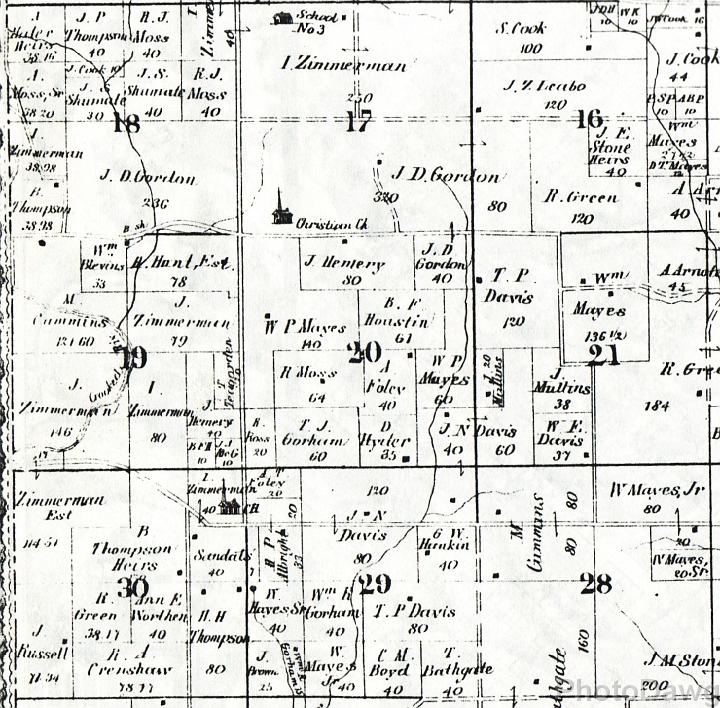 J. P
Thompson
40
H. J.
Moss
40
Heirs
38.16
School
No 3
I. Zimmerman
250
17
S. Cook
100
J. Z. Leabo
120
16
J. E.
Stone
Heirs
40
J. Cook
44
J. Cook 10
J. S.
Shumate
30
J. S.
Shumate
40
R. J.
Moss
40
A.
Moss, Sr
38 20
18
P. S P
10
A B P
10
Wm
Mayes
D T. Mayes
Zimmerman
38.98
J. D. Gordon
236
J. D. Gordon
320
80
R. Green
120
40
Thompson
38.98
Christian Ch
Wm
Blevins
33
H. Hunt, Est.
78
J. Hemery
80
J. D
Gordon
40
T. P
Davis
120
Wm
Mayes
136 1/2
A Arnold
45
M
Cummins
121 60
J.
Zimmerman
79
W P Mayes
140
B. F
Houstin
61
19
20
21
R. Gree
184
J.
Zimmerman
146
I
Zimmerman
80
T
Teegarden
R Moss
64
A
Foley
40
W P
Mayes
60
Mullins
20
J.
Mullins
38
J.
Hemery
40
R.
Ross
20
T. J.
Gorham
60
D
Hyder
35
J. N Davis
40
60
W. E.
Davis
37
Zimmerman
Est
114 51
I.
Zimmerman
40
CH
A T
Foley
20
20
120
J. N
Davis
80
M
Cummins
80
80
W Mayes, Jr
80
B
Thompson
Heirs
Sandals
40
H P
Albright
33
G W.
Hankin
40
20
W Mayes,
Sr
30
29
28
R.
Green
38 17
Ann E
Worthen
40
H. H
Thompson
80
W.
Mayes, Sr
40
Wm R
Gorham
40
T. P Davis
80
J
Russell
71 34
R. A.
Crenshaw
78 17
J.
Brown
25
Gorham
W.
Mayes
Jr 40
C M.
Boyd
40
T.
Bathgate
40
160
J. M Ston
200
PhotoDawg